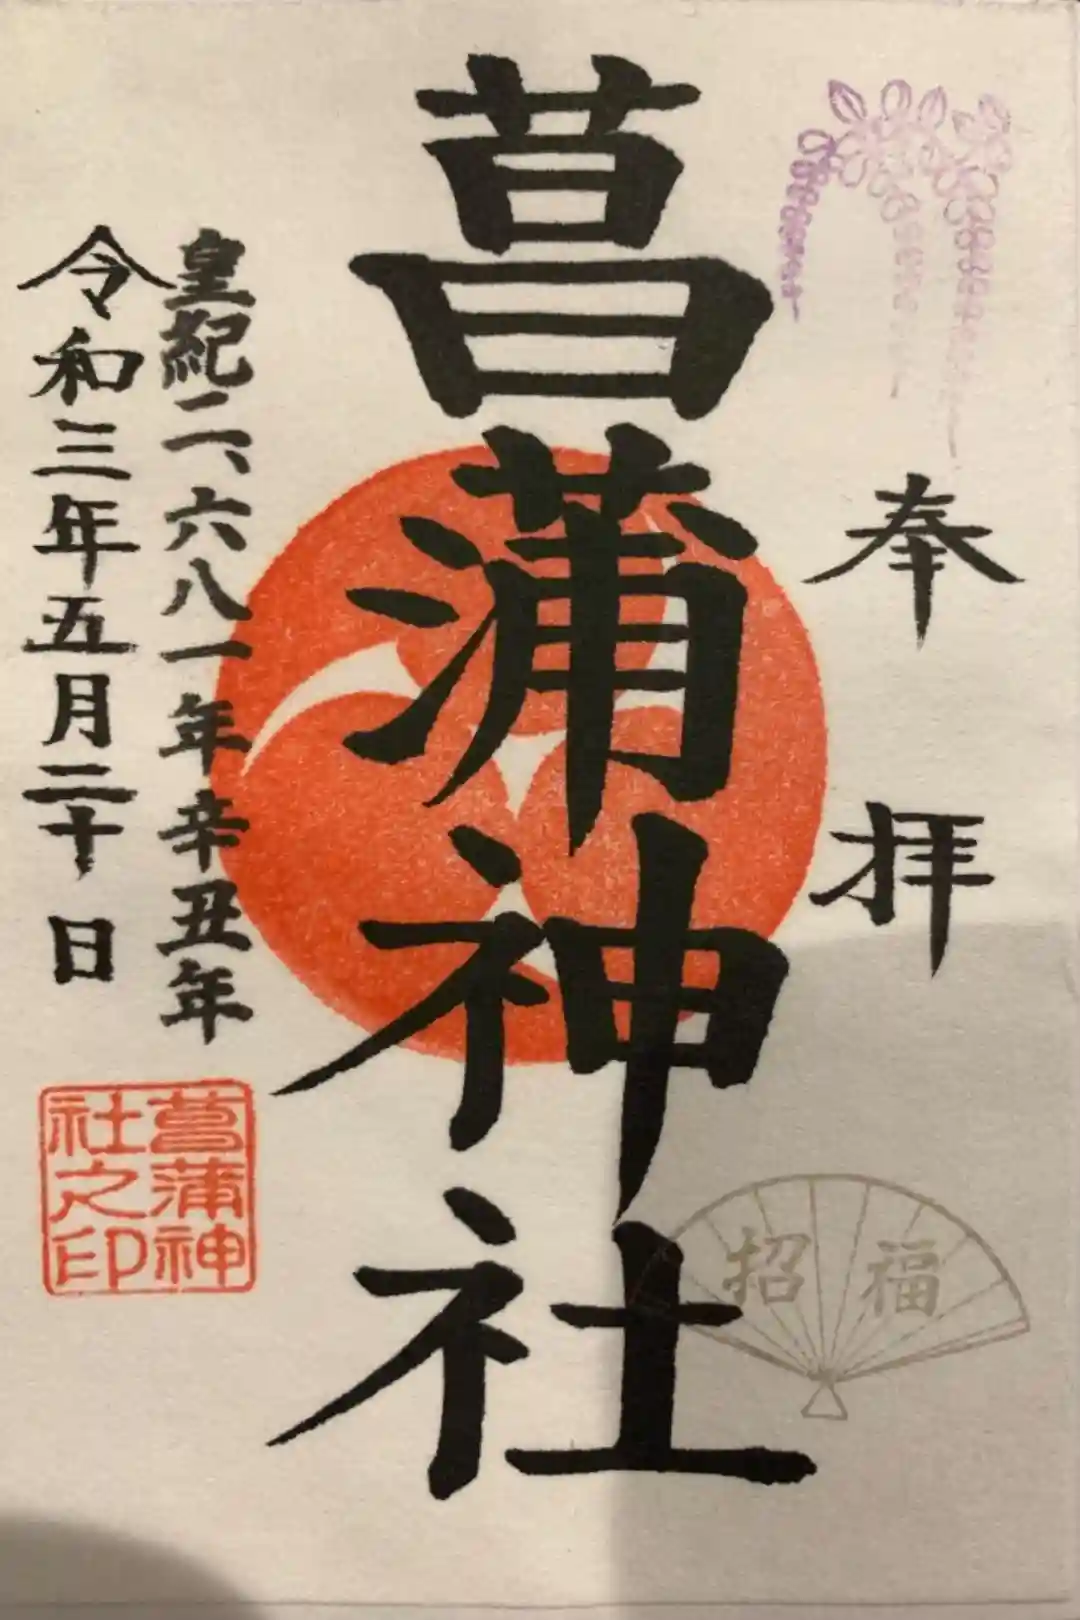 奉拝
福招
菖蒲神社
皇紀二、六八一年辛丑年
令和三年五月二十日
菖蒲神
社之印